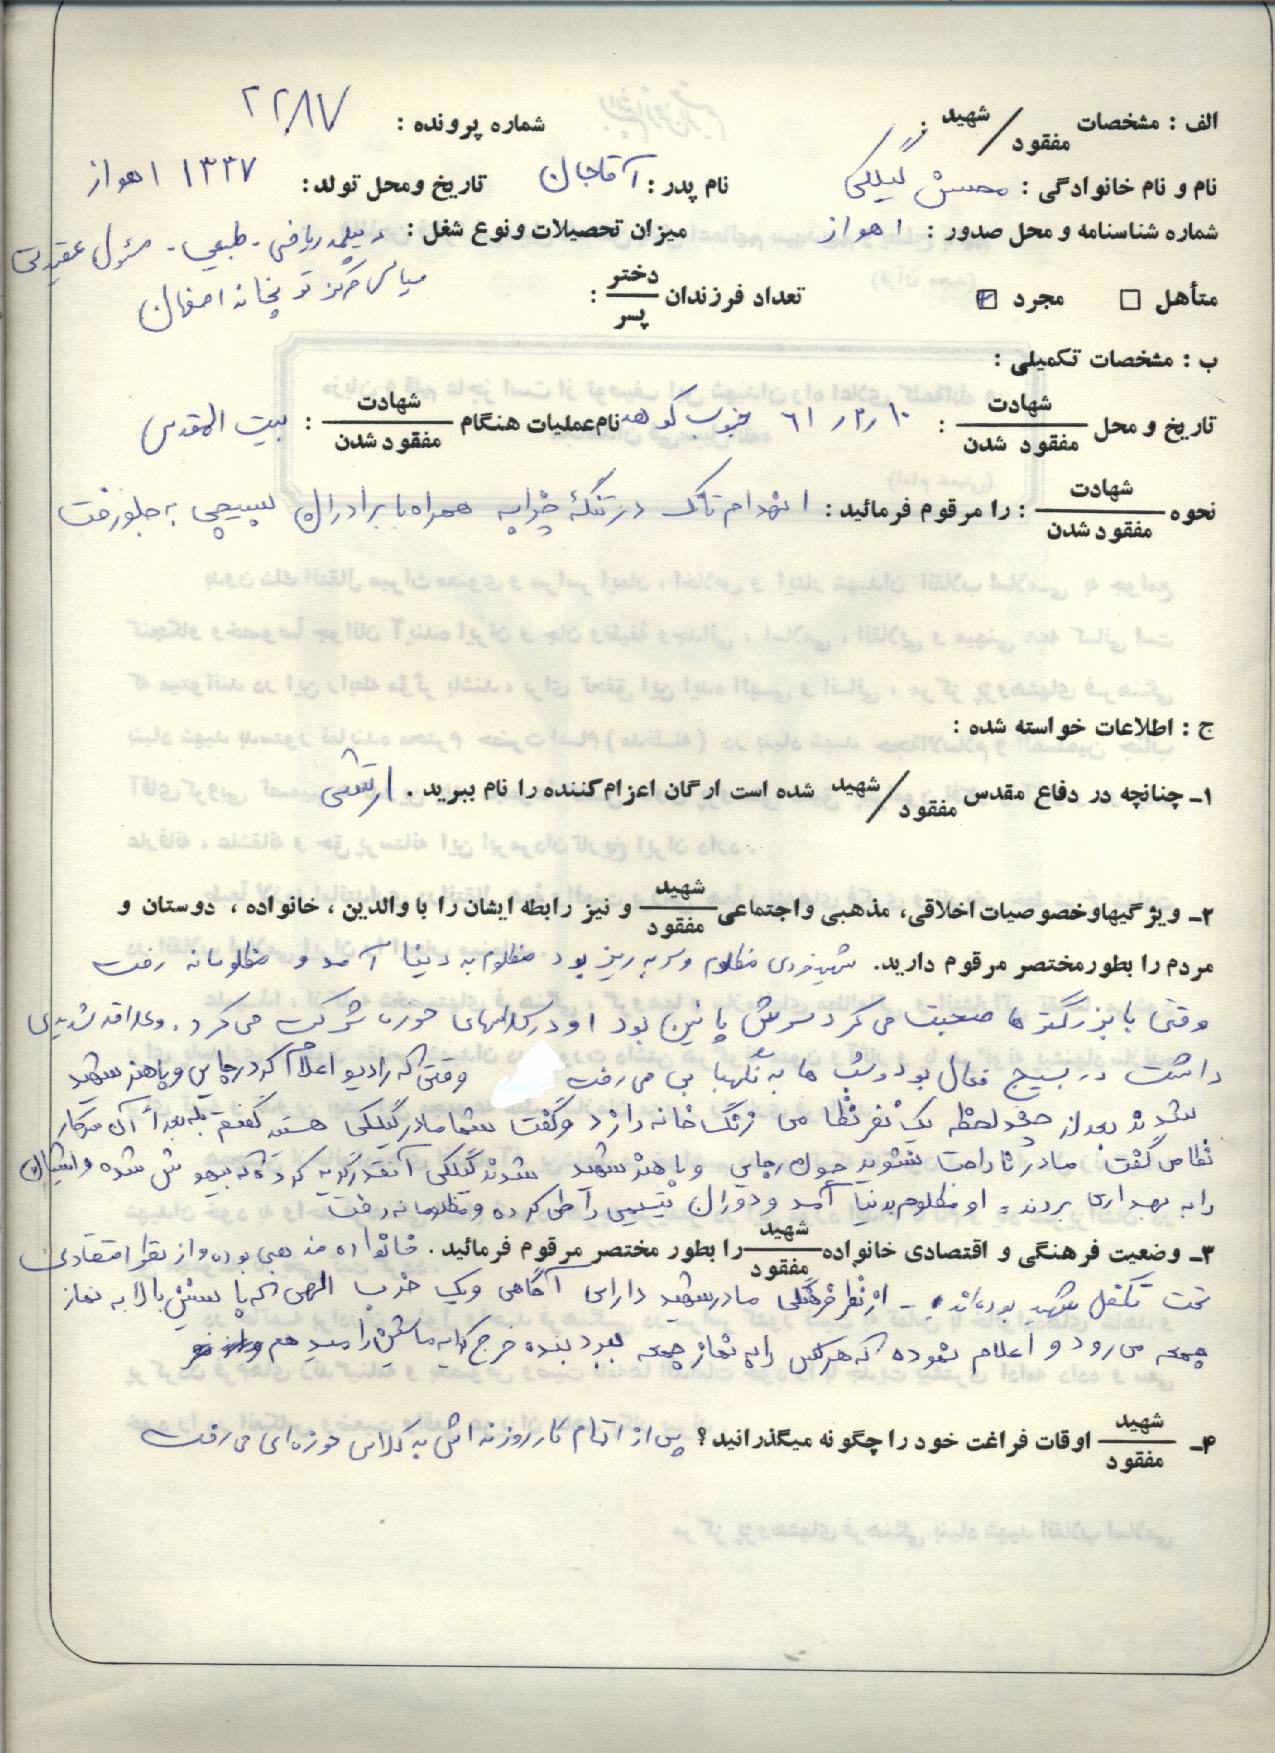 الف : مشخصات شهید / مفقود : شماره پرونده : ۲۲۸۷
نام و نام خانوادگی : محسن گیلکی نام پدر : آقاجان تاریخ ومحل تولد : ۱۳۳۷ اهواز
شماره شناسنامه و محل صدور : اهواز میزان تحصیلات ونوع شغل : دیپلمه ریاضی - طبیعی - مسئول عقیدتی
سیاسی مرکز توپخانه اصفهان
متأهل ☐ مجرد ☑ تعداد فرزندان دختر / پسر :
ب : مشخصات تکمیلی :
تاریخ و محل شهادت / مفقود شدن : ۶۱/۲/۱۰ جنوب نام عملیات هنگام شهادت / مفقود شدن : بیت المقدس
نحوه شهادت / مفقود شدن : را مرقوم فرمائید : انهدام تانک در تنگهٔ چزابه همراه با برادران بسیجی به جلو رفت
ج : اطلاعات خواسته شده :
۱- چنانچه در دفاع مقدس شهید / مفقود شده است ارگان اعزام کننده را نام ببرید . ارتش
۲- ویژگیهاوخصوصیات اخلاقی، مذهبی واجتماعی شهید / مفقود و نیز رابطه ایشان را با والدین ، خانواده ، دوستان و
مردم را بطور مختصر مرقوم دارید. شهید فردی مظلوم وسر به زیر بود مظلوم به دنیا آمد و مظلومانه رفت
وقتی با بزرگتر ها صحبت می کرد سرش پائین بود او در کلاسهای حوزه شرکت می کرد . وعلاقه شدیدی
داشت در بسیج فعال بود و شب ها به نگهبانی می رفت وقتی که رادیو اعلام کرد رجایی و باهنر شهید
شدند بعد از چند لحظه یک نفر نظامی زنگ خانه را زد و گفت شما مادر گیلکی هستید گفتم بله بعداً آن سرکار
نظامی گفت مادر ناراحت نشوید چون رجایی و باهنر شهید شدند گیلکی آنقدر گریه کرده که بیهوش شده و ایشان
را به بهداری بردند . او مظلوم بدنیا آمد و دوران یتیمی را طی کرده و مظلومانه رفت
۳- وضعیت فرهنگی و اقتصادی خانواده شهید / مفقود را بطور مختصر مرقوم فرمائید . خانواده مذهبی بوده و از نظر اقتصادی
تحت تکفل شهید بوده‌اند . - از نظر فرهنگی مادر شهید دارای آگاهی و یک حزب الهی که با سنین بالا به نماز
جمعه می رود و اعلام نموده که هرکس را به نماز جمعه ببرد بنده خرج کرایه ماشین را میدهم
۴- شهید / مفقود اوقات فراغت خود را چگونه میگذرانید ؟ پس از اتمام کار روزانه اش به کلاس حوزه ای می رفت